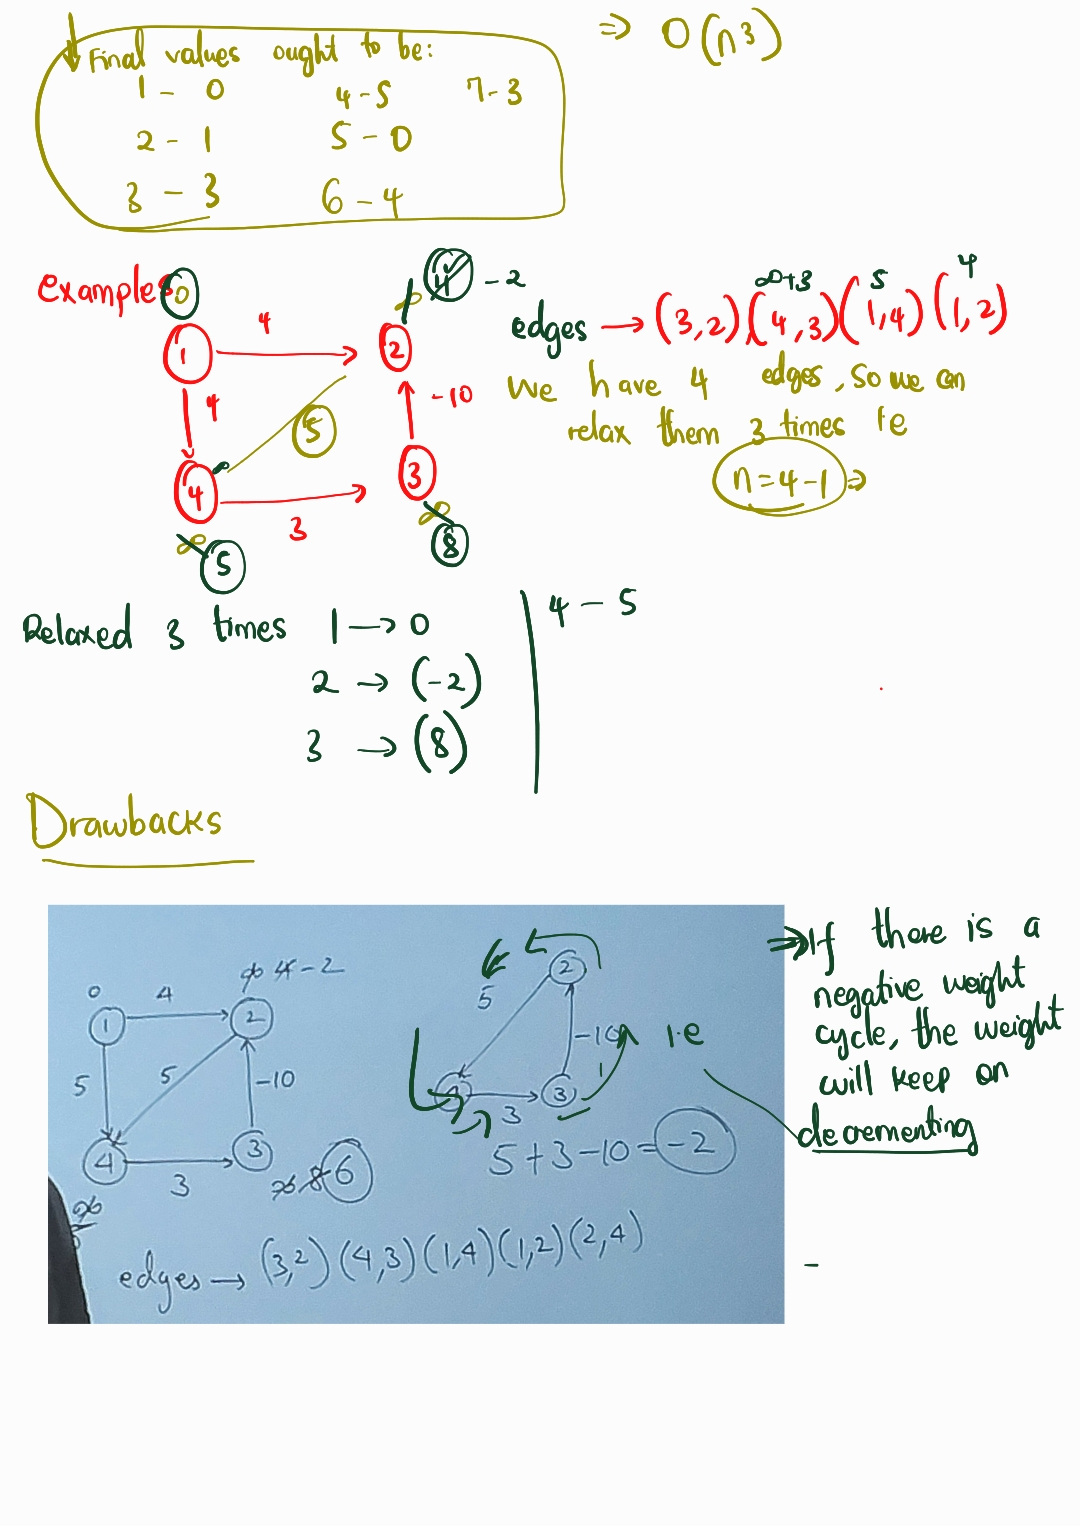 Final values ought to be:
⇒ O(n³)
1 - 0 4 - 5 7 - 3
2 - 1 5 - 0
3 - 3 6 - 4
Examples
0
1
4
∞ 4 - 2
2
edges → (3,2), (4,3) (1,4) (1,2)
∞+3 5 4
We have 4 edges, so we can
relax them 3 times ie
n = 4 - 1 ⇒
4
5
-10
4
3
3
∞ 5
∞ 8
Relaxed 3 times 1 → 0
2 → (-2)
3 → (8)
4 - 5
Drawbacks
0
1
4
∞ 4 - 2
2
5
5
-10
4
3
3
∞ 8 6
edges → (3,2) (4,3) (1,4) (1,2) (2,4)
2
5
-10
3
3
5 + 3 - 10 = -2
i.e
⇒ If there is a
negative weight
cycle, the weight
will keep on
decrementing
-